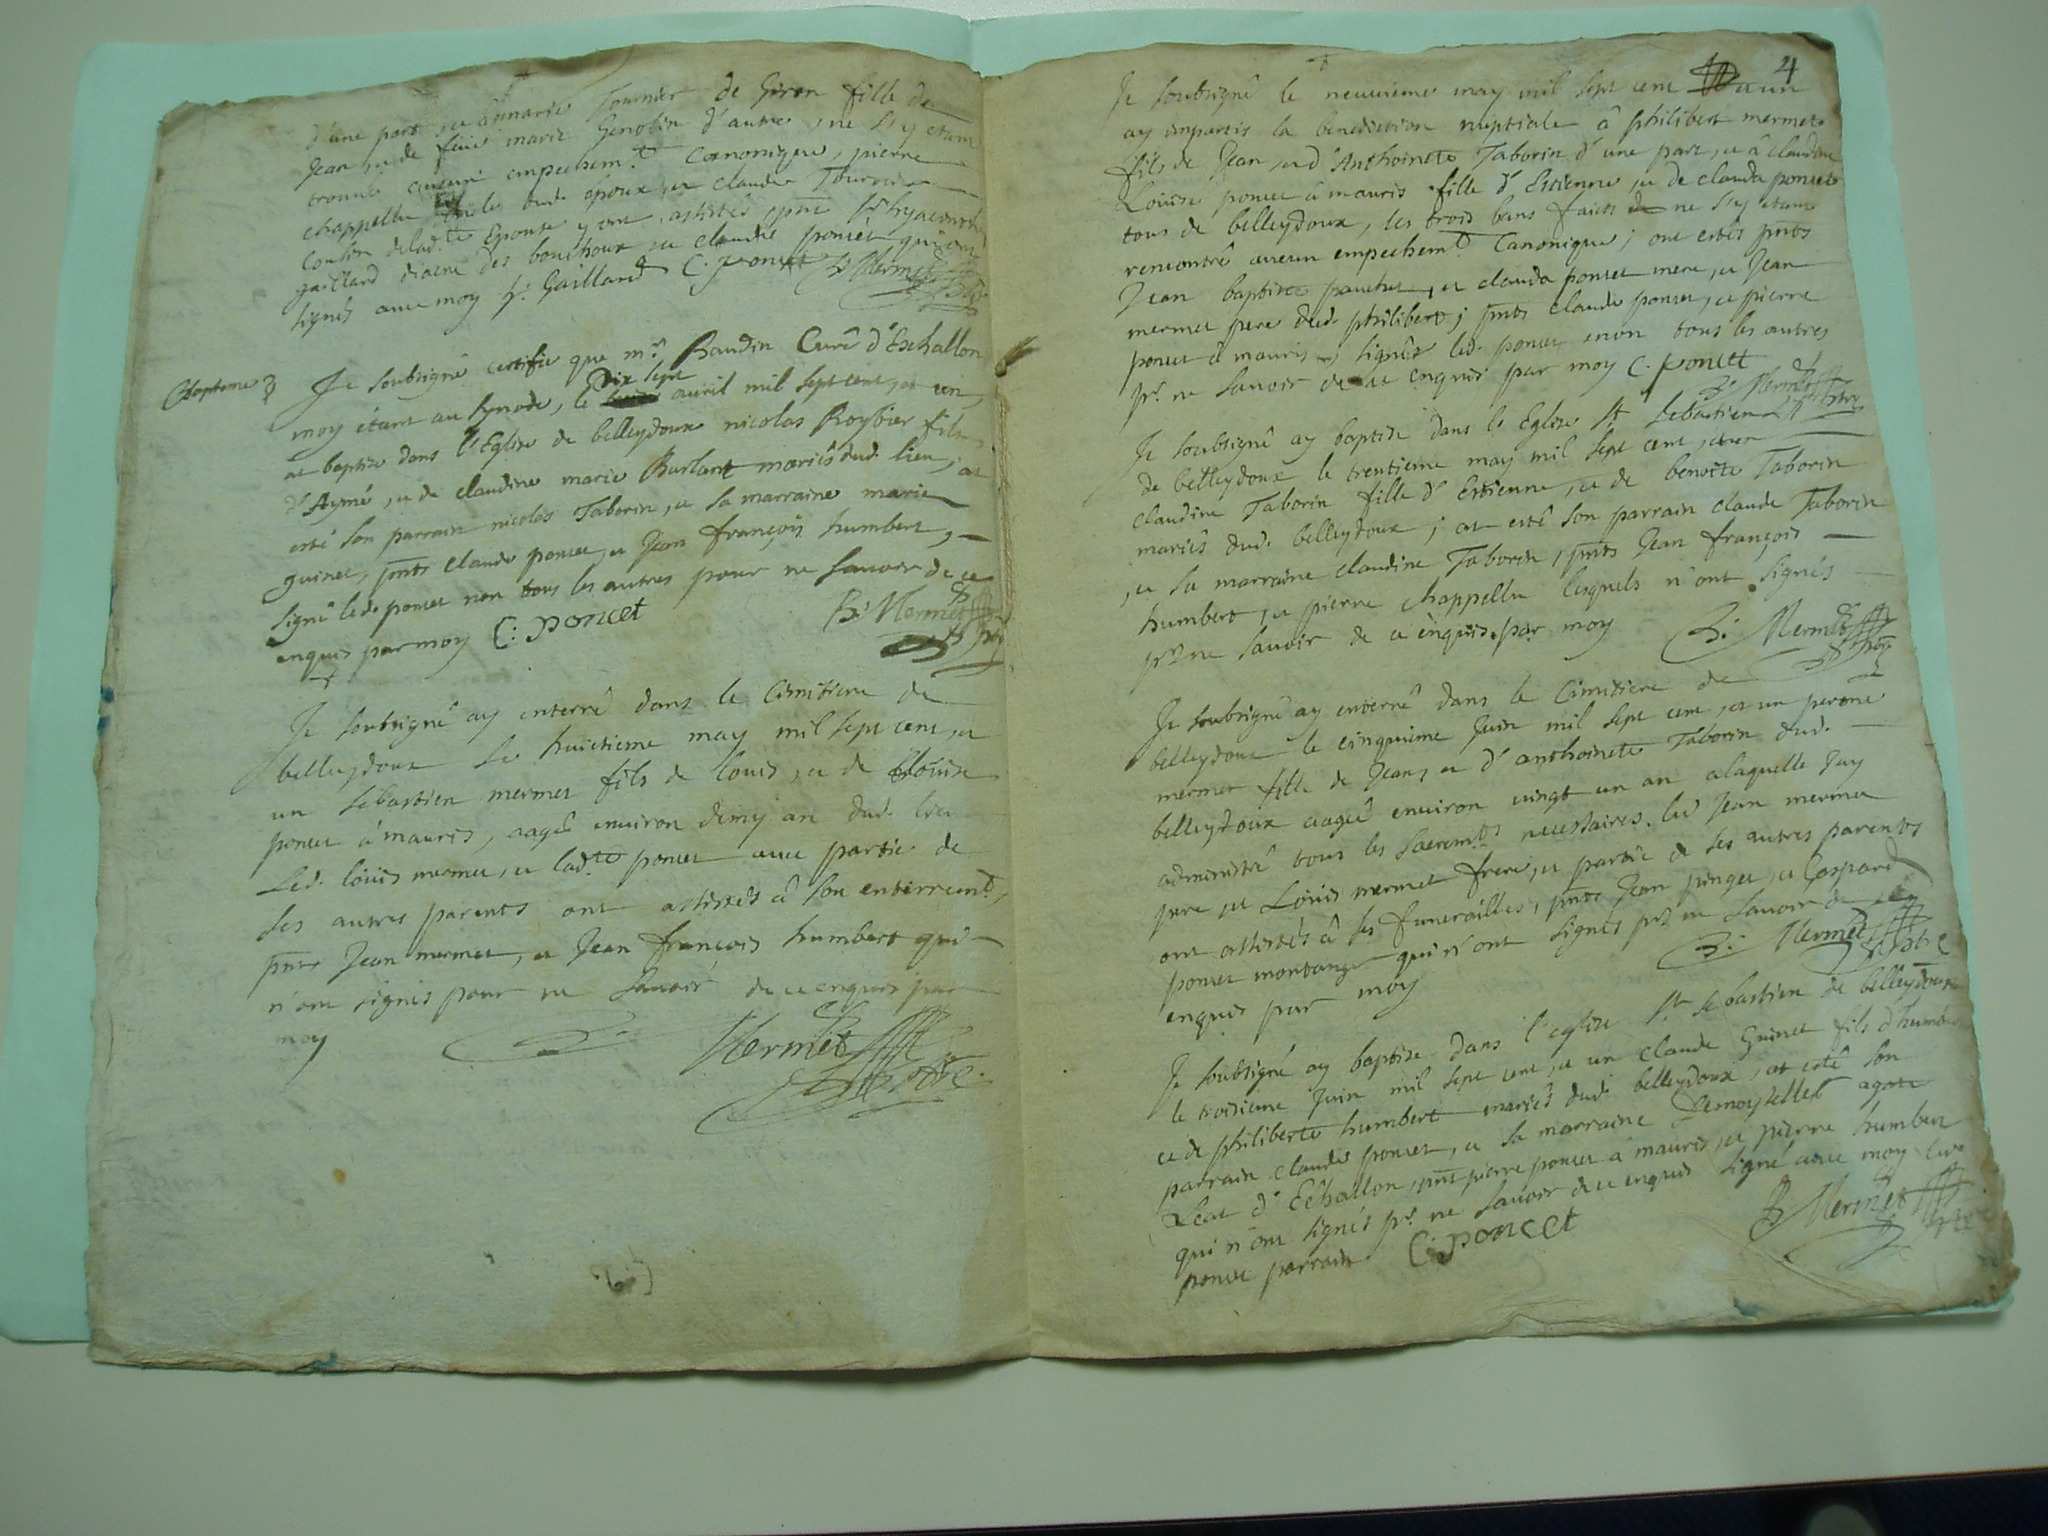 d'une part, et à marie Tournier de Giron fille de
Jean, et de feue marie Genolin d'autre, ne s'y étant
trouvé aucun empechemt. Canonique, pierre
chappellu oncle dud. époux, et claude Tournier
cousin de lad.te Epouse y ont assistés, pnt sr hyacinthe
gaillard diacre des bouchoux et claude poncet qui ont
signés avec moy h: Gaillard C. poncet B: Mermet
ptre
Bapteme
Je soubsigné certifie que mr. Baudin Curé d'Eschallon
moy étant au synode, le Dix sept avril mil sept cent, et un,
at baptise dans l'Eglise de belleydoux nicolas Roybier fils
d'Aymé, et de claudine marie Burlant mariés dud. lieu, at
esté son parrain nicolas Taborin, et sa marraine marie
guinet, pnts claude poncet, et Jean françois humbert,
signé led. poncet non tous les autres pour ne savoir de ce
enquis par moy C: poncet B: Mermet
ptre
Je soubsigné ay enterré dans le Cimitiere de
belleydoux le huictieme may mil sept cent, et
un sebastien mermet fils de louis, et de Loüise
poncet à mauris, aagé environ demy an dud. lieu
Led. loüis mermet, et lad.te poncet avec partie de
ses autres parents ont assistés â son enterremt,
pnts Jean mermet, et Jean françois humbert qui
n'ont signés pour ne savoir de ce enquis par
moy B: Mermet
ptre
4
Je soubsigné le neuvieme may mil sept cent et un
ay impartis la benediction nuptiale â philibert mermet
fils de Jean, et d'Anthoinete Taborin d'une part, et â claudine
Loüise poncet â mauris fille d'Estienne, et de clauda poncet
tous de belleydoux, les trois bans faits ne s'y étant
rencontré aucun empechemt. Canonique; ont estés pnts
Jean baptiste et clauda poncet mere, et Jean
mermet pere dud. philibert; pnts claude poncet, et pierre
poncet â mauris, signés led. poncet non tous les autres
pr. ne savoir de ce enquis par moy C. poncet
B: Mermet ptre
Je soubsigné ay baptise dans l'Eglise St Sebastien
de belleydoux le trentieme may mil sept cent, et un
claudine Taborin fille d'Estienne, et de benoite Taborin
mariés dud. belleydoux; at esté son parrain claude Taborin
, et sa marraine claudine Taborin, pnts Jean françois
humbert, et pierre chappellu lesquels n'ont signés
pr. ne savoir de ce enquis par moy B: Mermet
ptre
Je soubsigné ay enterré dans le Cimitiere de
belleydoux le cinquieme Juin mil sept cent, et un perone
mermet fille de Jean, et d'anthoinete Taborin dud.
belleydoux aagée environ vingt un an alaquelle J'ay
administré tous les sacremts necessaires. led. Jean mermet
pere, et Loüis mermet frere, et partie de ses autres parents
ont assistés â ses funerailles, pnts Jean pinget, et Gaspard
poncet montange qui n'ont signés pr. ne savoir de ce
enquis par moy B: Mermet
ptre
Je soubsigné ay baptise dans l'eglise St sebastien de belleydoux
le troisieme Juin mil sept cent, et un claude Guinet fils d'humbert
et de philiberte humbert mariés dud. belleydoux, at esté son
parrain claude poncet, et sa marraine Demoyselle agate
d'Echallon, pnt pierre poncet à mauris, et pierre humbert
qui n'ont signés pr. ne savoir de ce enquis signé avec moy led.
poncet parrain C: poncet B: Mermet
ptre